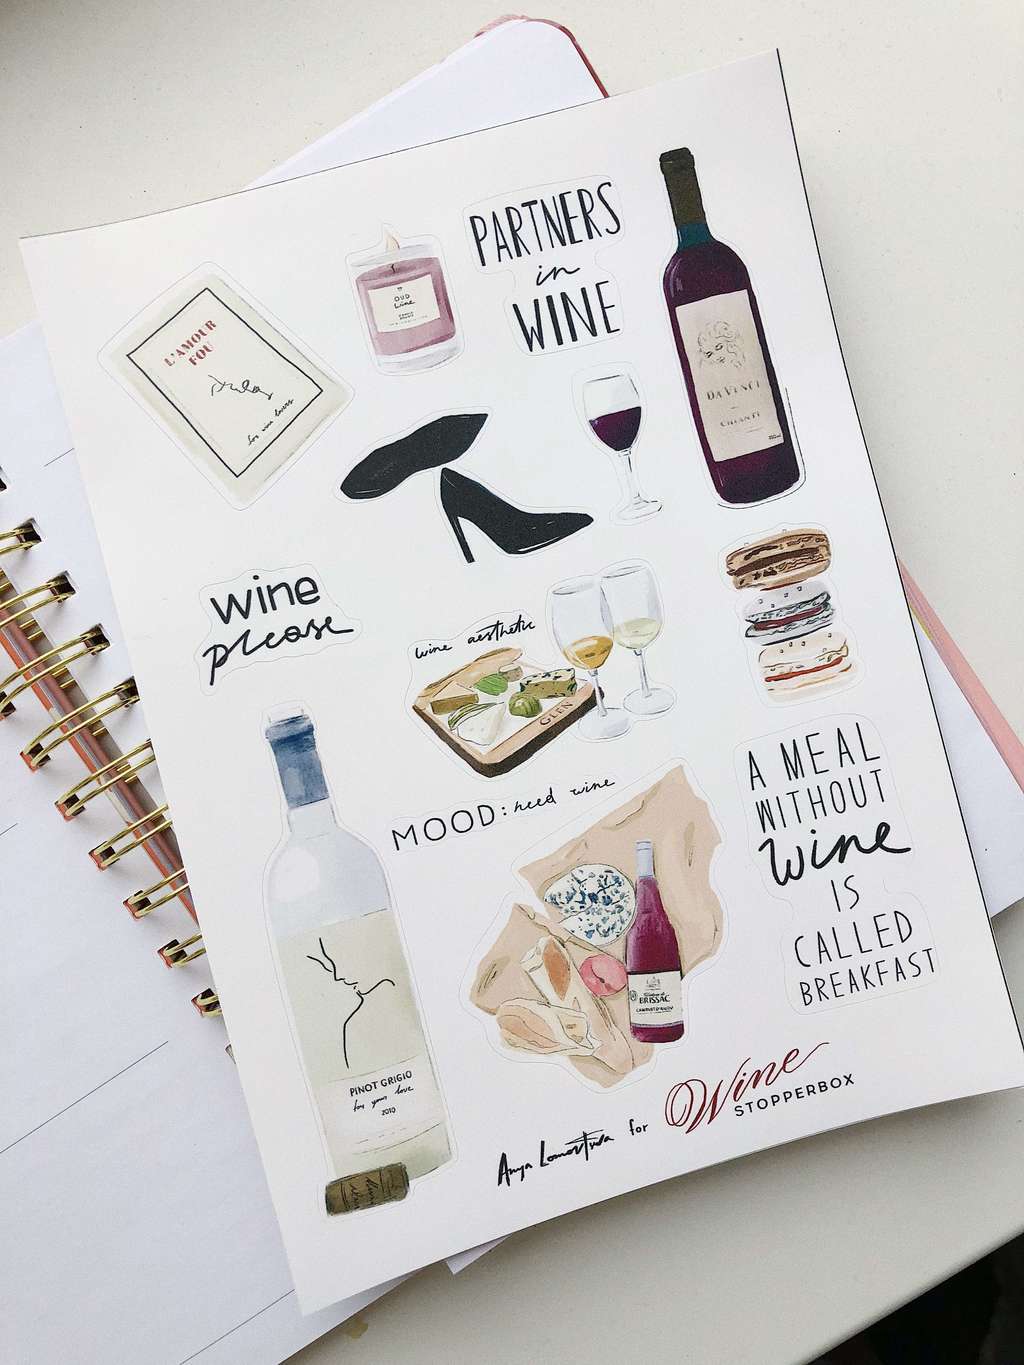 PARTNERS
in
WINE
L'AMOUR
FOU
for wine lovers
OUD
Wine
DA VINCI
CHIANTI
wine
please
wine aesthetic
GLEN
MOOD: need wine
A MEAL
WITHOUT
Wine
IS
CALLED
BREAKFAST
BRISSAC
PINOT GRIGIO
for your love
2010
Anya
for
Wine
STOPPERBOX